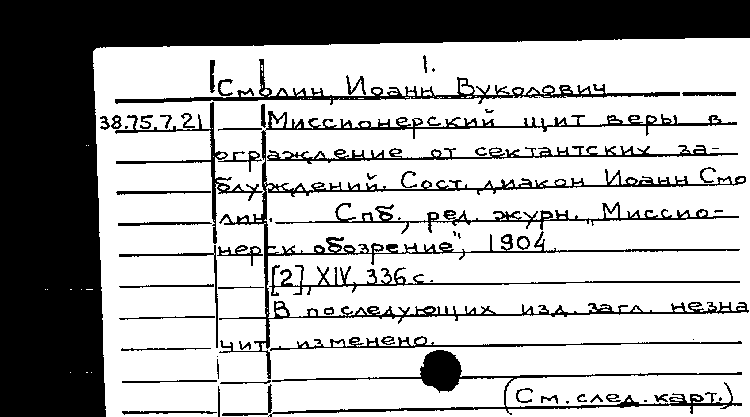 1.
Смолин, Иоанн Вуколович
38.75.7.21 Миссионерский щит веры в
ограждение от сектантских за-
блуждений. Сост. диакон Иоанн Смо
лин. Спб., ред. журн. „Миссио-
нерск. обозрение", 1904
[2], XIV, 336 с.
В последующих изд. загл. незна
чит. изменено.
(См. след. карт.)